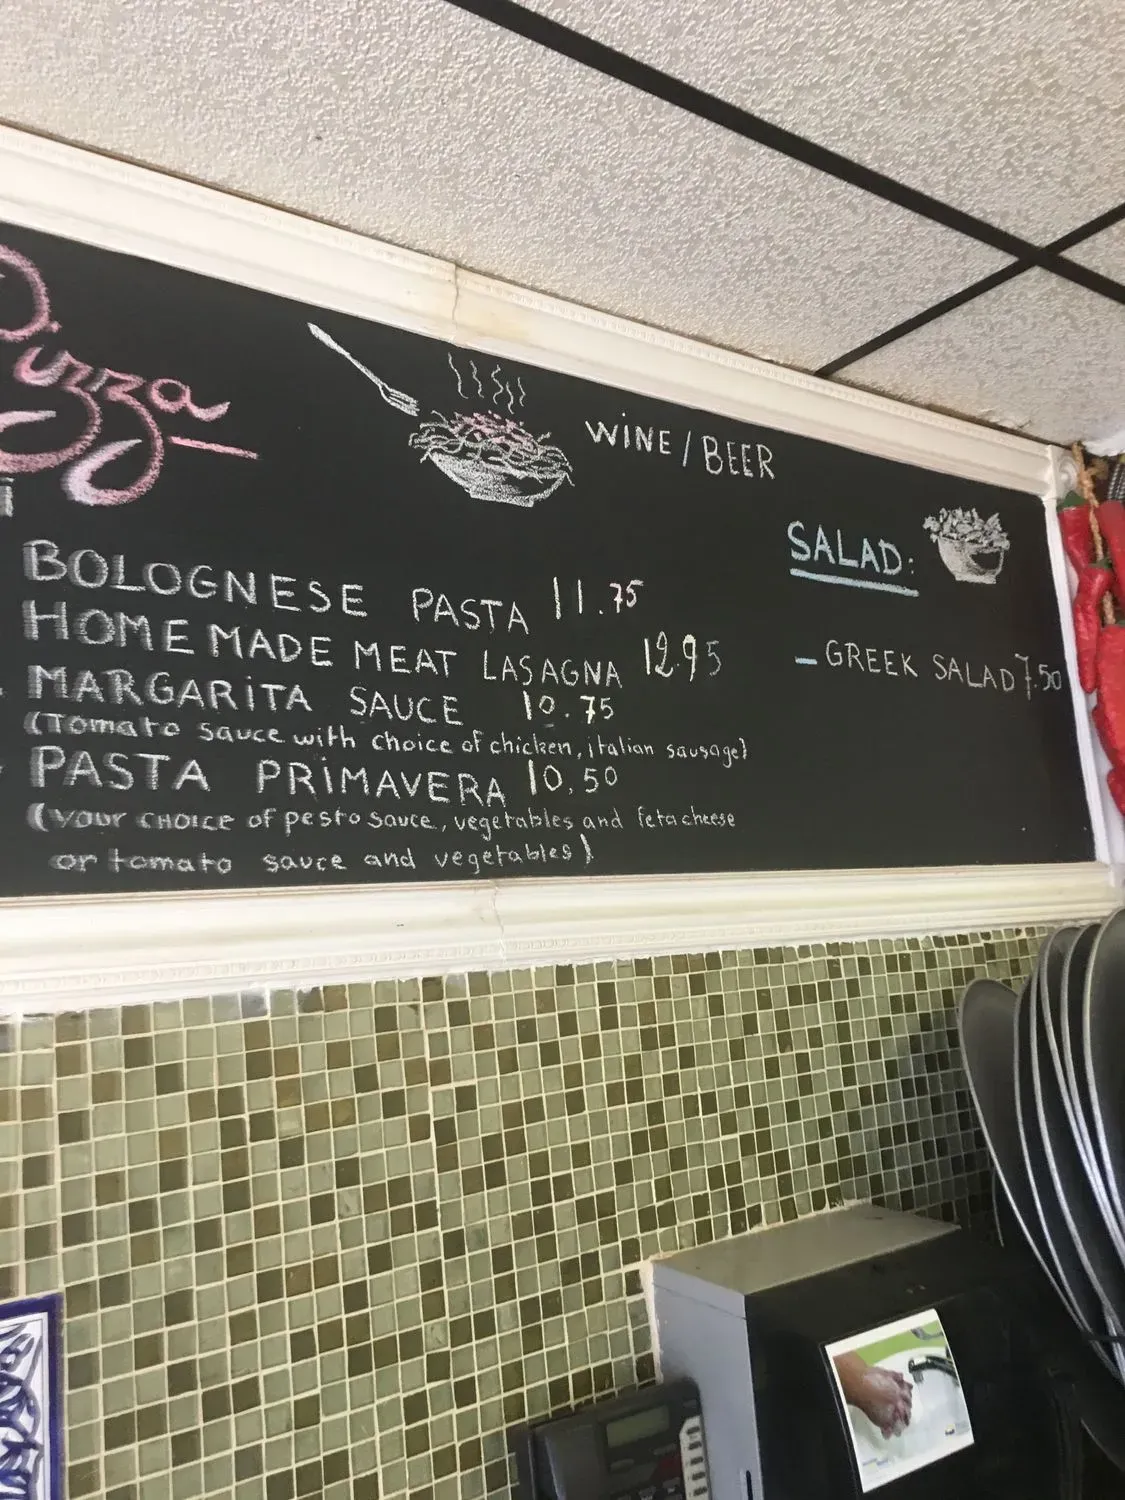 Pizza
WINE / BEER
SALAD:
BOLOGNESE PASTA 11.75
HOMEMADE MEAT LASAGNA 12.95
- GREEK SALAD 7.50
MARGARITA SAUCE 10.75
(Tomato sauce with choice of chicken, italian sausage)
PASTA PRIMAVERA 10.50
(your CHOICE of pesto sauce, vegetables and feta cheese
or tomato sauce and vegetables)